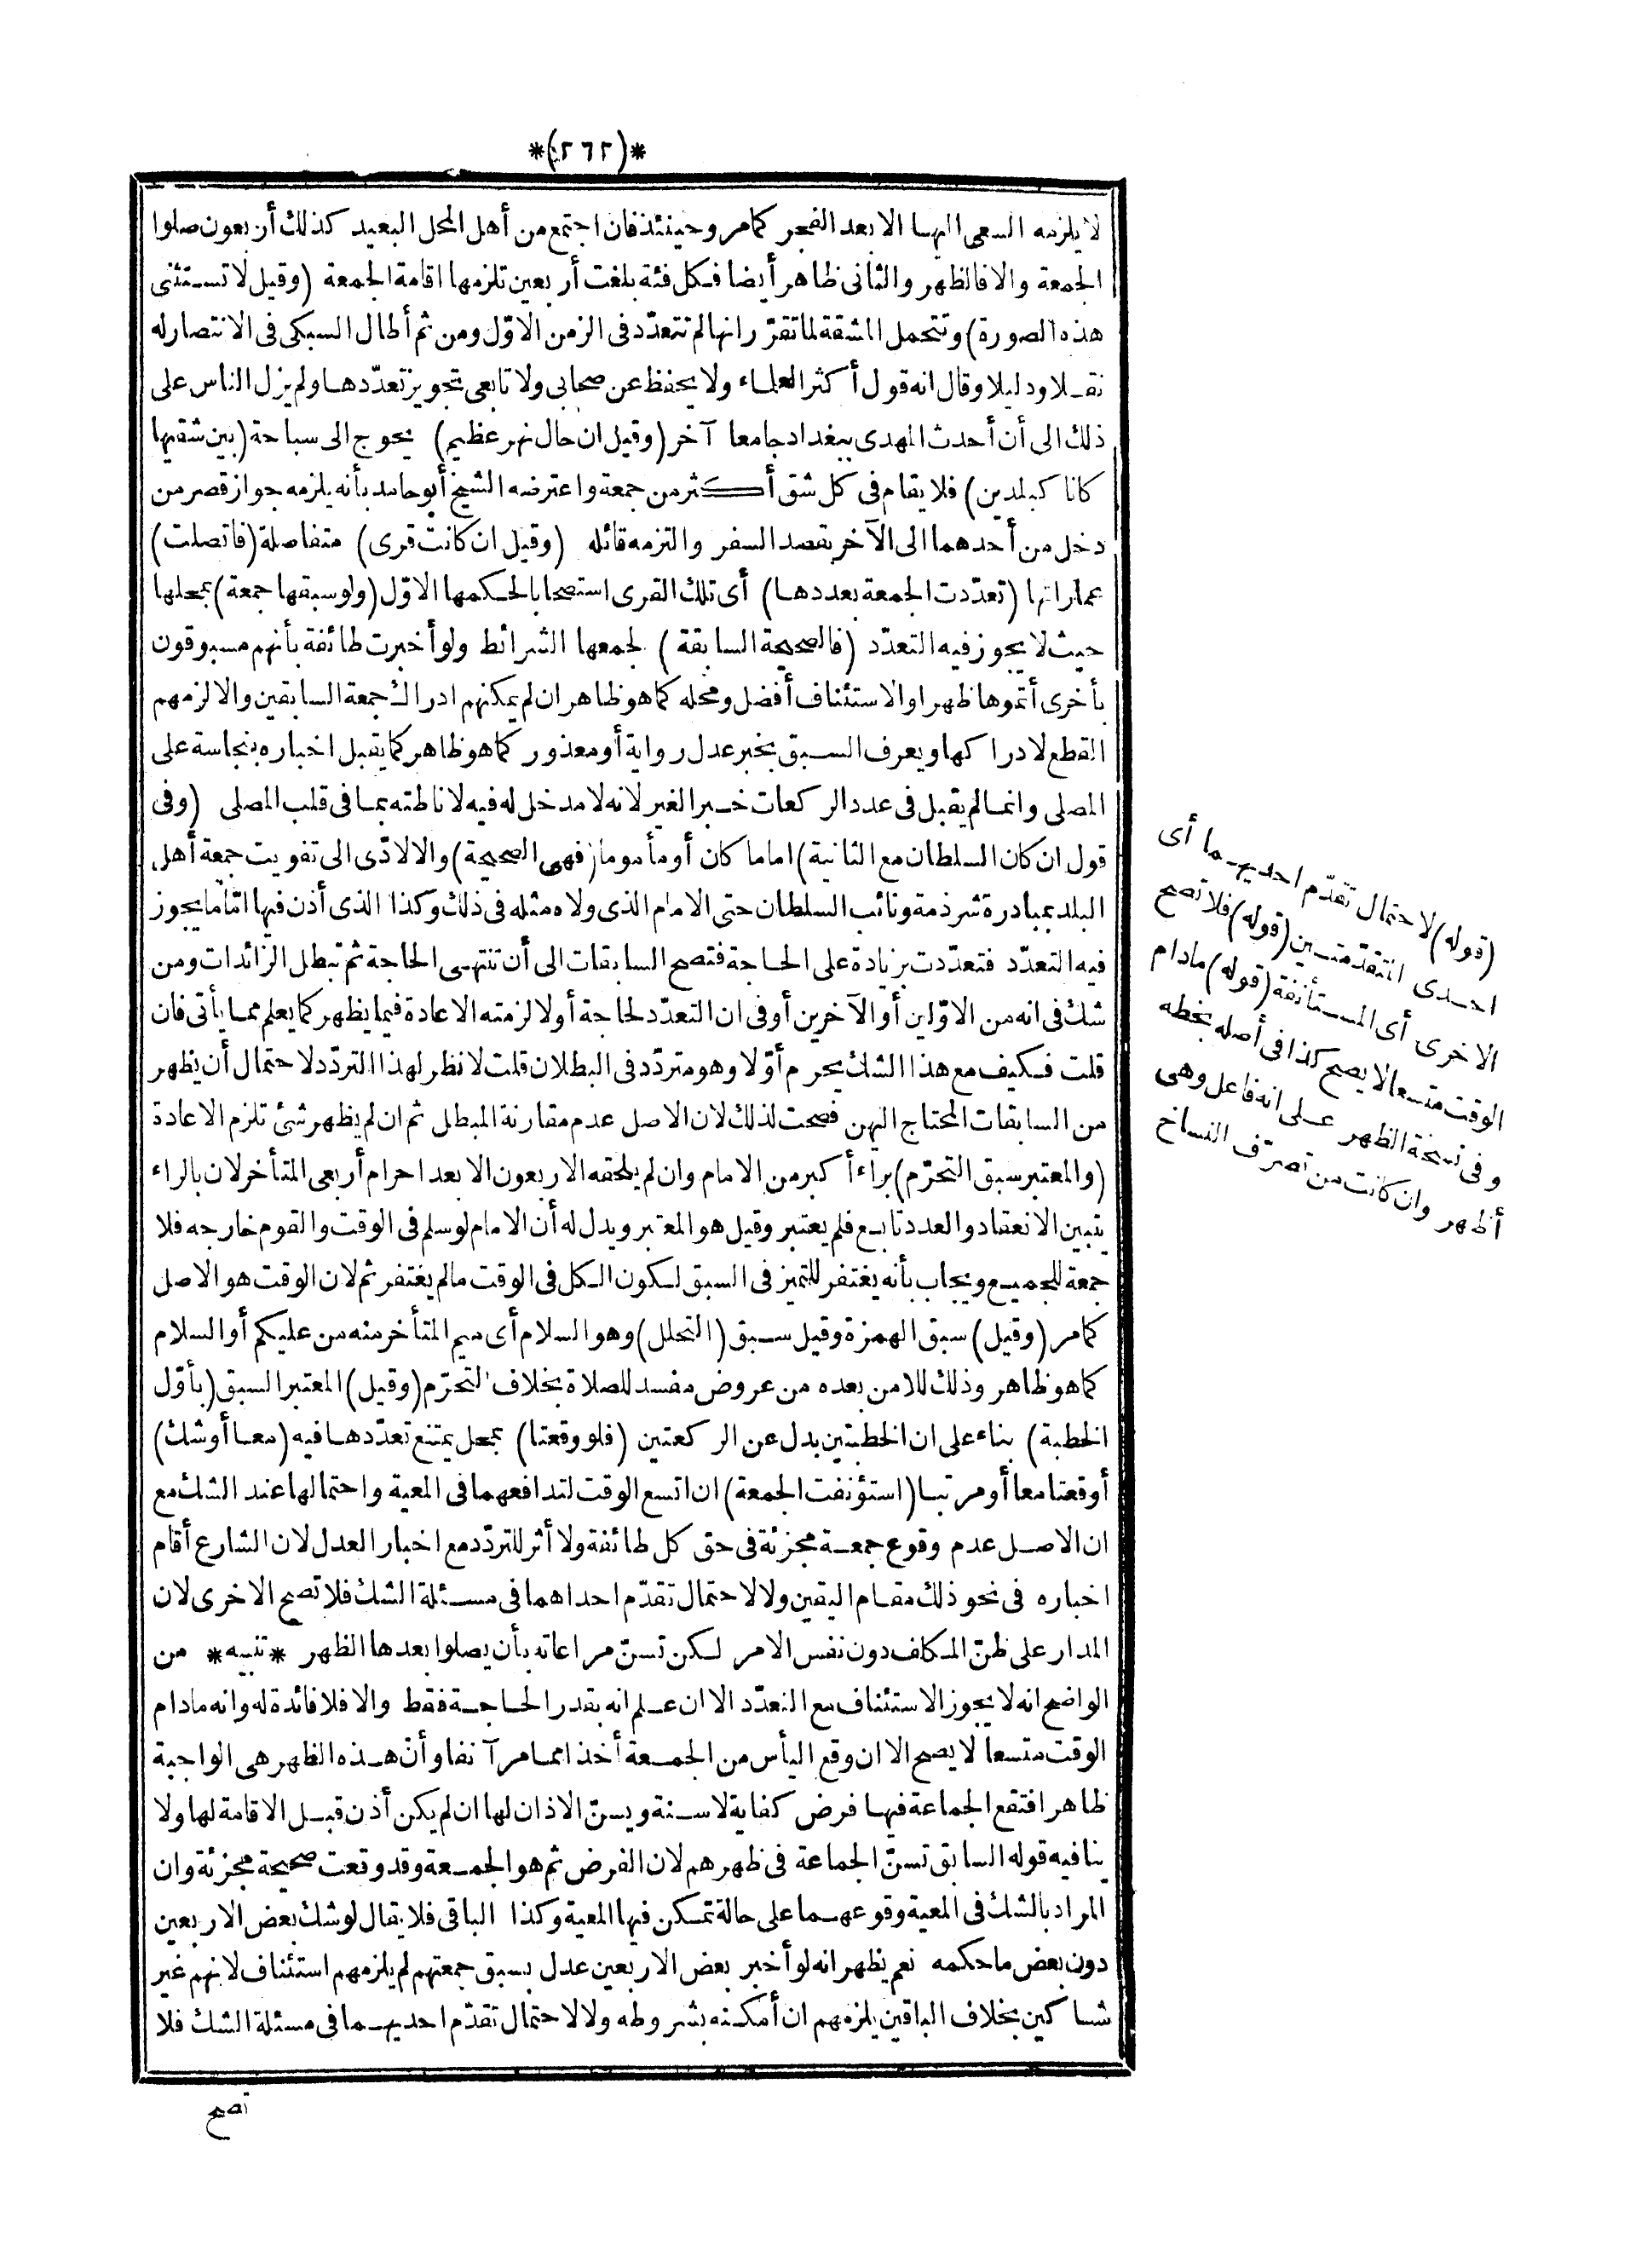 *(٢٦٢)*
لا يلزمه السعى اليها الا بعد الفجر كمامر وحينئذ فان اجتمع من أهل المحل البعيد كذلك أربعون صلوا
الجمعة والا فالظهر والثانى ظاهر أيضا فكل فئة بلغت أربعين تلزمها اقامة الجمعة (وقيل لا تستثنى
هذه الصورة) وتتحمل المشقة لما تقرّر انها لم تتعدّد فى الزمن الاوّل ومن ثم أطال السبكى فى الانتصار له
نقلا ودليلا وقال انه قول أكثر العلماء ولا يحفظ عن صحابى ولا تابعى تجويز تعدّدها ولم يزل الناس على
ذلك الى أن أحدث المهدى ببغداد جامعا آخر (وقيل ان حال نهر عظيم) يحوج الى سباحة (بين شقيها
كانا كبلدين) فلا يقام فى كل شق أكثر من جمعة واعترضه الشيخ أبو حامد بأنه يلزمه جواز قصر من
دخل من أحدهما الى الآخر بقصد السفر والتزمه قائله (وقيل ان كانت قرى) متفاصلة (فاتصلت)
عماراتها (تعدّدت الجمعة بعددها) أى تلك القرى استصحابا لحكمها الاوّل (ولو سبقها جمعة) بمحلها
حيث لا يجوز فيه التعدّد (فالصحيحة السابقة) لجمعها الشرائط ولو أخبرت طائفة بأنهم مسبوقون
بأخرى أتموها ظهرا والاستئناف أفضل ومحله كما هو ظاهر ان لم يمكنهم ادراك جمعة السابقين والا لزمهم
القطع لادراكها ويعرف السبق بخبر عدل رواية أو معذور كما هو ظاهر كما يقبل اخباره بنجاسة على
المصلى وانما لم يقبل فى عدد الركعات خبر الغير لانه لا مدخل له فيه لاناطته بما فى قلب المصلى (وفى
قول ان كان السلطان مع الثانية) اماما كان أو مأموما (فهى الصحيحة) والا لادّى الى تفويت جمعة أهل
البلد بمبادرة شرذمة ونائب السلطان حتى الامام الذى ولاه مثله فى ذلك وكذا الذى أذن فيها امّا ما يجوز
فيه التعدّد فتعدّدت بزيادة على الحاجة فتصح السابقات الى أن تنتهى الحاجة ثم تبطل الزائدات ومن
شك فى انه من الاوّلين أو الآخرين أو فى ان التعدّد لحاجة أولا لزمته الاعادة فيما يظهر كما يعلم مما يأتى فان
قلت فكيف مع هذا الشك يحرم أوّلا وهو متردّد فى البطلان قلت لا نظر لهذا التردّد لاحتمال أن يظهر
من السابقات المحتاج اليهن فصحت لذلك لان الاصل عدم مقارنة المبطل ثم ان لم يظهر شئ تلزم الاعادة
(والمعتبر سبق التحرّم) براء أكبر من الامام وان لم يلحقه الاربعون الا بعد احرام أربعى المتأخر لان بالراء
يتبين الانعقاد والعدد تابع فلم يعتبر وقيل هو المعتبر ويدل له أن الامام لو سلم فى الوقت والقوم خارجه فلا
جمعة للجميع ويجاب بأنه يغتفر للتميز فى السبق لكون الكل فى الوقت ما لم يغتفر ثم لان الوقت هو الاصل
كمامر (وقيل) سبق الهمزة وقيل سبق (التحلل) وهو السلام أى ميم المتأخر منه من عليكم أو السلام
كما هو ظاهر وذلك للامن بعده من عروض مفسد للصلاة بخلاف التحرّم (وقيل) المعتبر السبق (بأوّل
الخطبة) بناء على ان الخطبتين بدل عن الركعتين (فلو وقعتا) بمحل يمتنع تعدّدها فيه (معا أو شك)
أوقعتا معا أو مرتبا (استؤنفت الجمعة) ان اتسع الوقت لتدافعهما فى المعية واحتمالها عند الشك مع
ان الاصل عدم وقوع جمعة مجزئة فى حق كل طائفة ولا أثر للتردّد مع اخبار العدل لان الشارع أقام
اخباره فى نحو ذلك مقام اليقين ولا لاحتمال تقدّم احداهما فى مسئلة الشك فلا تصح الاخرى لان
المدار على ظنّ المكلف دون نفس الامر لكن تسنّ مراعاته بأن يصلوا بعدها الظهر *تنبيه* من
الواضح انه لا يجوز الاستئناف مع التعدّد الا ان علم انه بقدر الحاجة فقط والا فلا فائدة له وانه مادام
الوقت متسعا لا يصح الا ان وقع اليأس من الجمعة أخذا ممامر آنفا وأنّ هذه الظهر هى الواجبة
ظاهرا فتقع الجماعة فيها فرض كفاية لا سنة ويسنّ الاذان لها ان لم يكن أذن قبل الاقامة لها ولا
ينافيه قوله السابق تسنّ الجماعة فى ظهرهم لان الفرض ثم هو الجمعة وقد وقعت صحيحة مجزئة وان
المراد بالشك فى المعية وقوعهما على حالة تمكن فيها المعية وكذا الباقى فلا يقال لو شك بعض الاربعين
دون بعض ما حكمه نعم يظهر انه لو أخبر بعض الاربعين عدل بسبق جمعتهم لم يلزمهم استئناف لانهم غير
شاكين بخلاف الباقين يلزمهم ان أمكنه بشروطه ولا لاحتمال تقدّم احديهما فى مسئلة الشك فلا
تصح
(قوله) لاحتمال تقدّم احديهما أى
احدى المتقدّمتين (قوله) فلا تصح
الاخرى أى المستأنفة (قوله) مادام
الوقت متسعا لا يصح كذا فى أصله بخطه
وفى نسخة الظهر على انه فاعل وهى
أظهر وان كانت من تصرّف النساخ